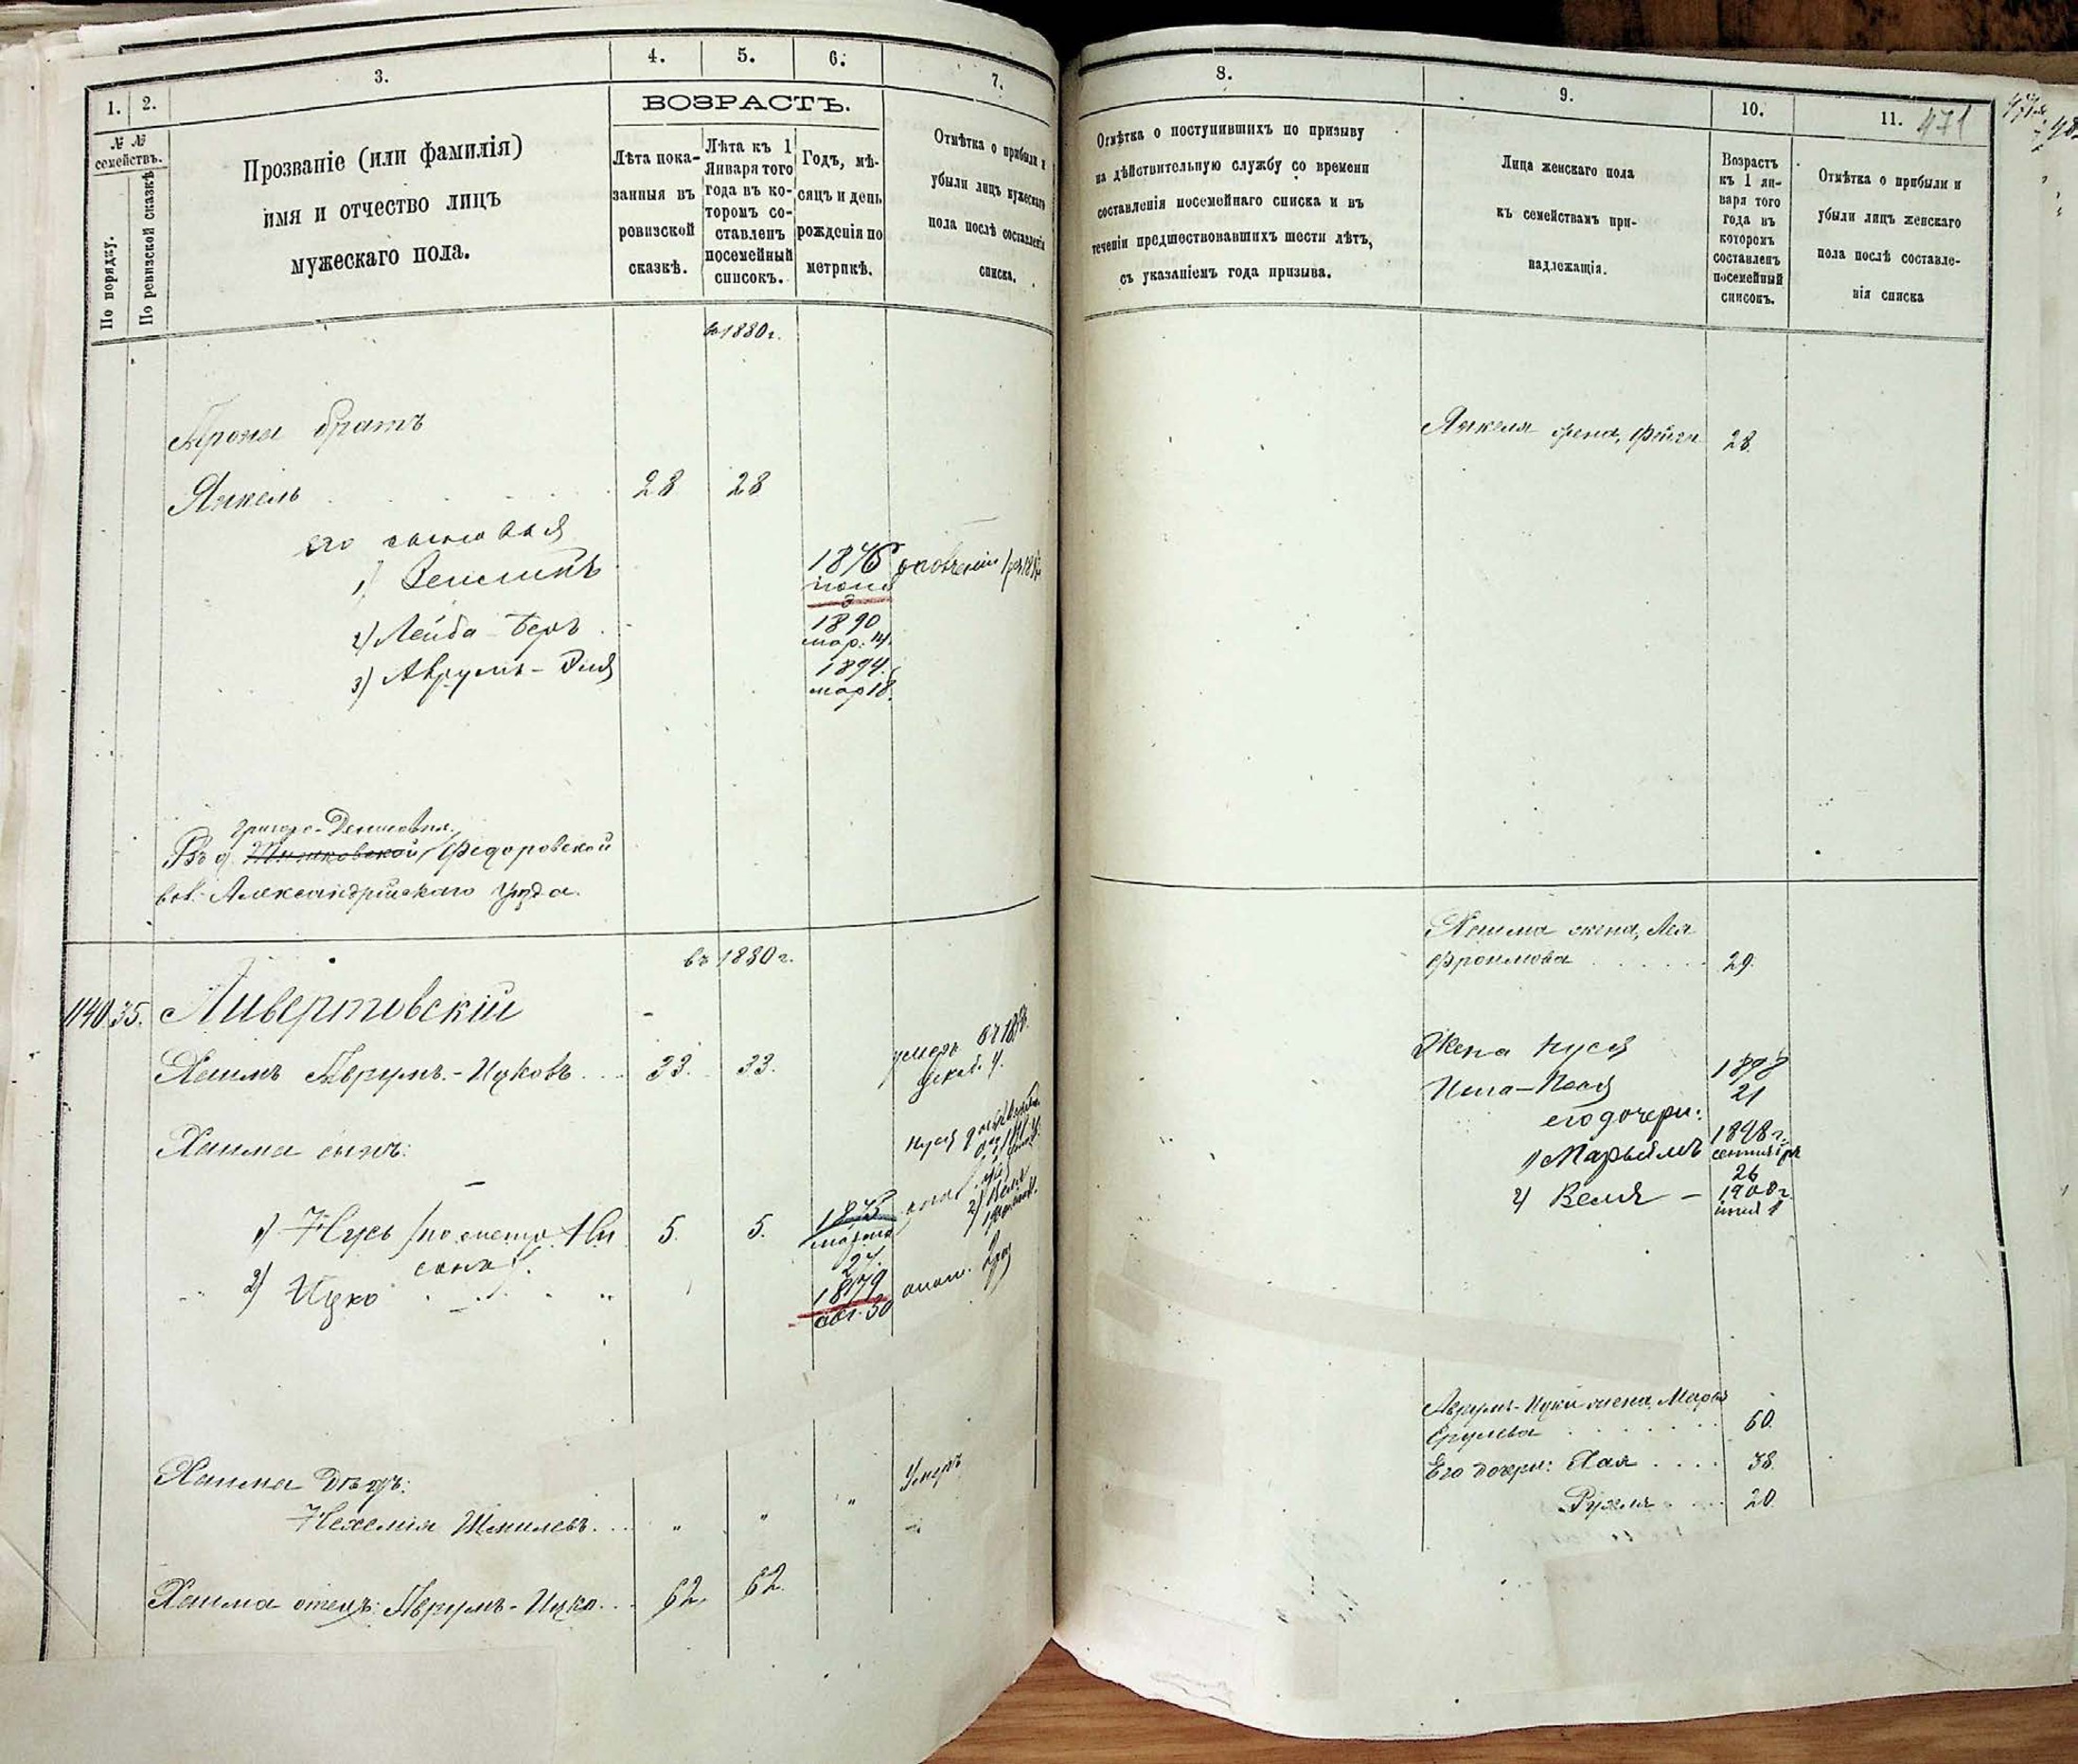 1.
2.
3.
4.
5.
6.
7.
№ №
семействъ.
По порядку.
По ревизской сказкѣ
Прозваніе (или фамилія)
имя и отчество лицъ
мужескаго пола.
ВОЗРАСТЪ.
Лѣта пока-
занныя въ
ревизской
сказкѣ.
Лѣта къ 1
Января того
года въ ко-
торомъ со-
ставленъ
посемейный
списокъ.
Годъ, мѣ-
сяцъ и день
рожденія по
метрикѣ.
Отмѣтка о прибыли и
убыли лицъ мужескаго
пола послѣ составленія
списка.
въ 1880 г.
Арона братъ
Янкель 28 28
его сыновья
1) Зельманъ 1876
3
2) Лейба-Беръ 1890
мар. 14
3) Аврумъ-Эля 1894
мар 18
Въ д. Федоровской
вол. Александрійскаго Уѣзда.
въ 1880 г.
1140 35. Ливертовскій
Хаимъ Аврумъ-Ицковъ 33. 33.
Хаима сынъ:
1) Нусь 5. 5. 1875
марта
27.
2) Ицко 1879
авг. 30
Хаима дѣдъ:
Нехемія Шмилевъ " " " Умеръ
Хаима отецъ: Аврумъ-Ицко 62. 62.
8.
9.
10.
11.
471
Отмѣтка о поступившихъ по призыву
на дѣйствительную службу со времени
составленія посемейнаго списка и въ
теченіи предшествовавшихъ шести лѣтъ,
съ указаніемъ года призыва.
Лица женскаго пола
къ семействамъ при-
надлежащія.
Возрастъ
къ 1 ян-
варя того
года въ
которомъ
составленъ
посемейный
списокъ.
Отмѣтка о прибыли и
убыли лицъ женскаго
пола послѣ составле-
нія списка
Янкеля жена, Фейга 28
Хаима жена, Лея
Фроимова 29.
Жена Нуся
1898
21
его дочери:
1) Марьямъ 1898 г.
26
2) Веля - 1900 г.
Аврумъ-Ицки жена, Марья
60.
Его дочери: Хая 38.
Рухля 20